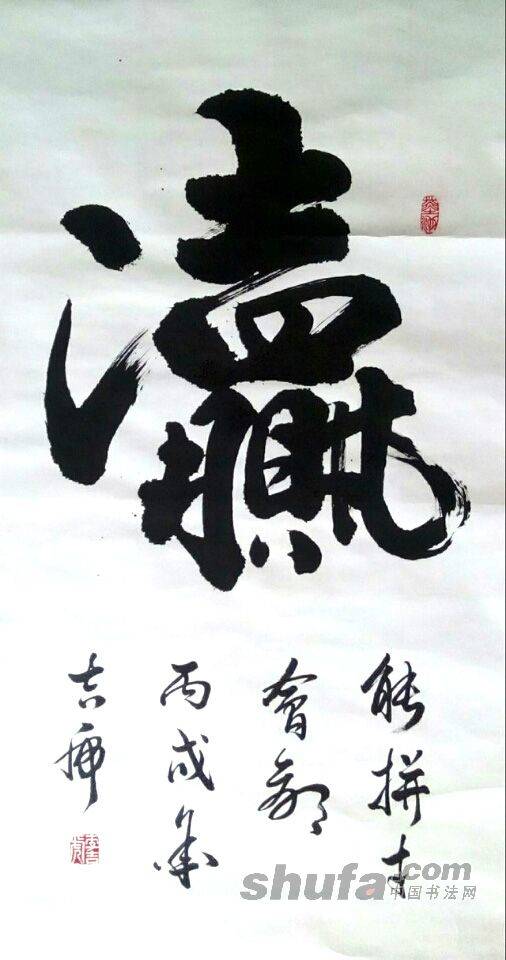 灜
能拼才
會贏
丙戌年
吉虎
shufa.com
中国书法网